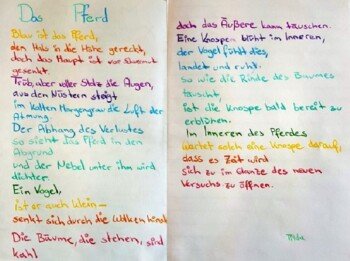 Das Pferd
Blau ist das Pferd,
den Hals in die Höhe gereckt,
doch das Haupt ist vor Schwermut
gesenkt.
Trüb, aber voller Stolz die Augen,
aus den Nüstern steigt
im kalten Morgengrau die Luft der
Atmung.
Der Abhang des Verlustes
so sieht das Pferd in den
Abgrund
und der Nebel unter ihm wird
dichter.
Ein Vogel,
ist er auch klein –
senkt sich durch die Wolken hinab
Die Bäume, die stehen, sind
kahl
doch das Äußere kann täuschen.
Eine Knospe blüht im Inneren,
der Vogel fühlt dies,
landet und ruht.
so wie die Rinde des Baumes
täuscht,
ist die Knospe bald bereit zu
erblühen.
Im Inneren des Pferdes
wartet solch eine Knospe darauf,
dass es Zeit wird
sich zu im Glanze des neuen
Versuchs zu öffnen.